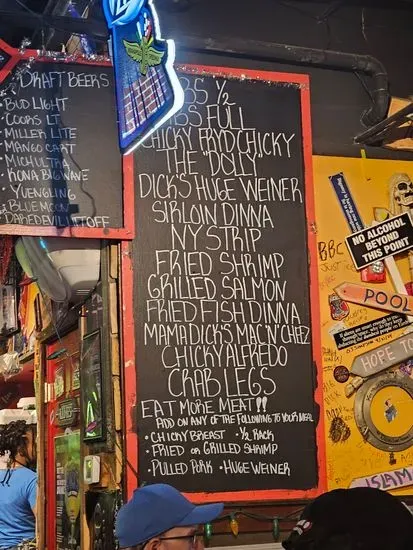 DRAFT BEERS
• BUD LIGHT
• COORS LT
• MILLER LITE
• MANGO CART
• MICH ULTRA
• KONA BIG WAVE
• YUENGLING
• BLUEMOON
• DAREDEVIL LIFTOFF
½
FULL
CHICKY FRYD CHICKY
THE "DOLLY"
DICK'S HUGE WEINER
SIRLOIN DINNA
NY STRIP
FRIED SHRIMP
GRILLED SALMON
FRIED FISH DINNA
MAMA DICK'S MAC'N'CHEZ
CHICKY ALFREDO
CRAB LEGS
EAT MORE MEAT!!
ADD ON ANY OF THE FOLLOWING TO YOUR MEAL
• CHICKY BREAST • ½ RACK
• FRIED OR GRILLED SHRIMP
• PULLED PORK • HUGE WEINER
NO ALCOHOL
BEYOND
THIS POINT
BBC
POOL
HOPE
ISLAM